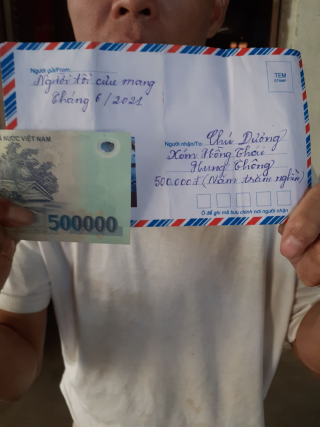 Người gửi/From:
Người tôi cưu mang
Tháng 6/2021
TEM
STAMP
Người nhận/To: Chú Dương
Xóm Hồng Thái
Hưng Thông
500.000đ (Năm trăm nghìn)
Ô để ghi mã bưu chính nơi người nhận
NƯỚC VIỆT NAM
500000